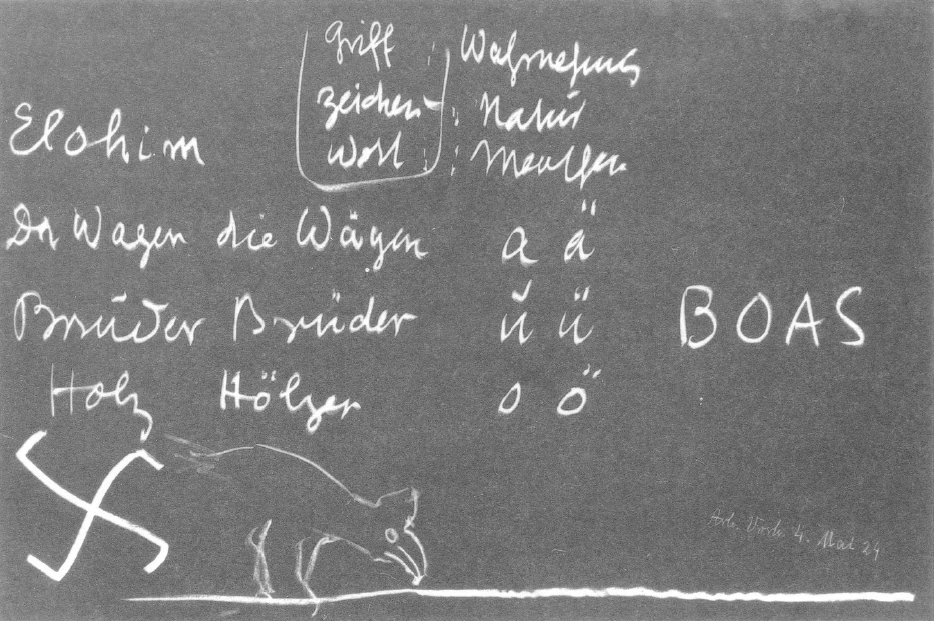 Griff : Wahrnehmung
Zeichen : Natur
Wort : Menschen
Elohim
Der Wagen die Wägen a ä
Bruder Brüder u ü BOAS
Holz Hölzer o ö
4. Mai 24